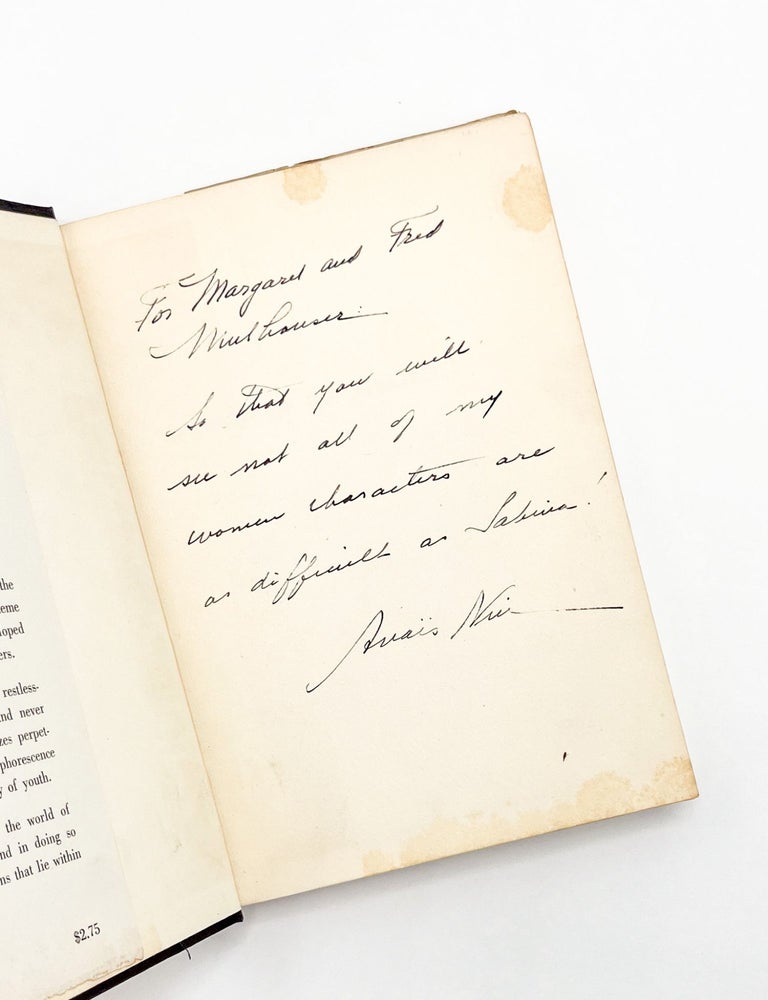 the
eme
oped
ers.
restless-
nd never
zes perpet-
phorescence
y of youth.
the world of
nd in doing so
ns that lie within
$2.75
For Margaret and Fred
Muhlhauser:
So that you will
see not all of my
women characters are
as difficult as Sabina!
Anaïs Nin